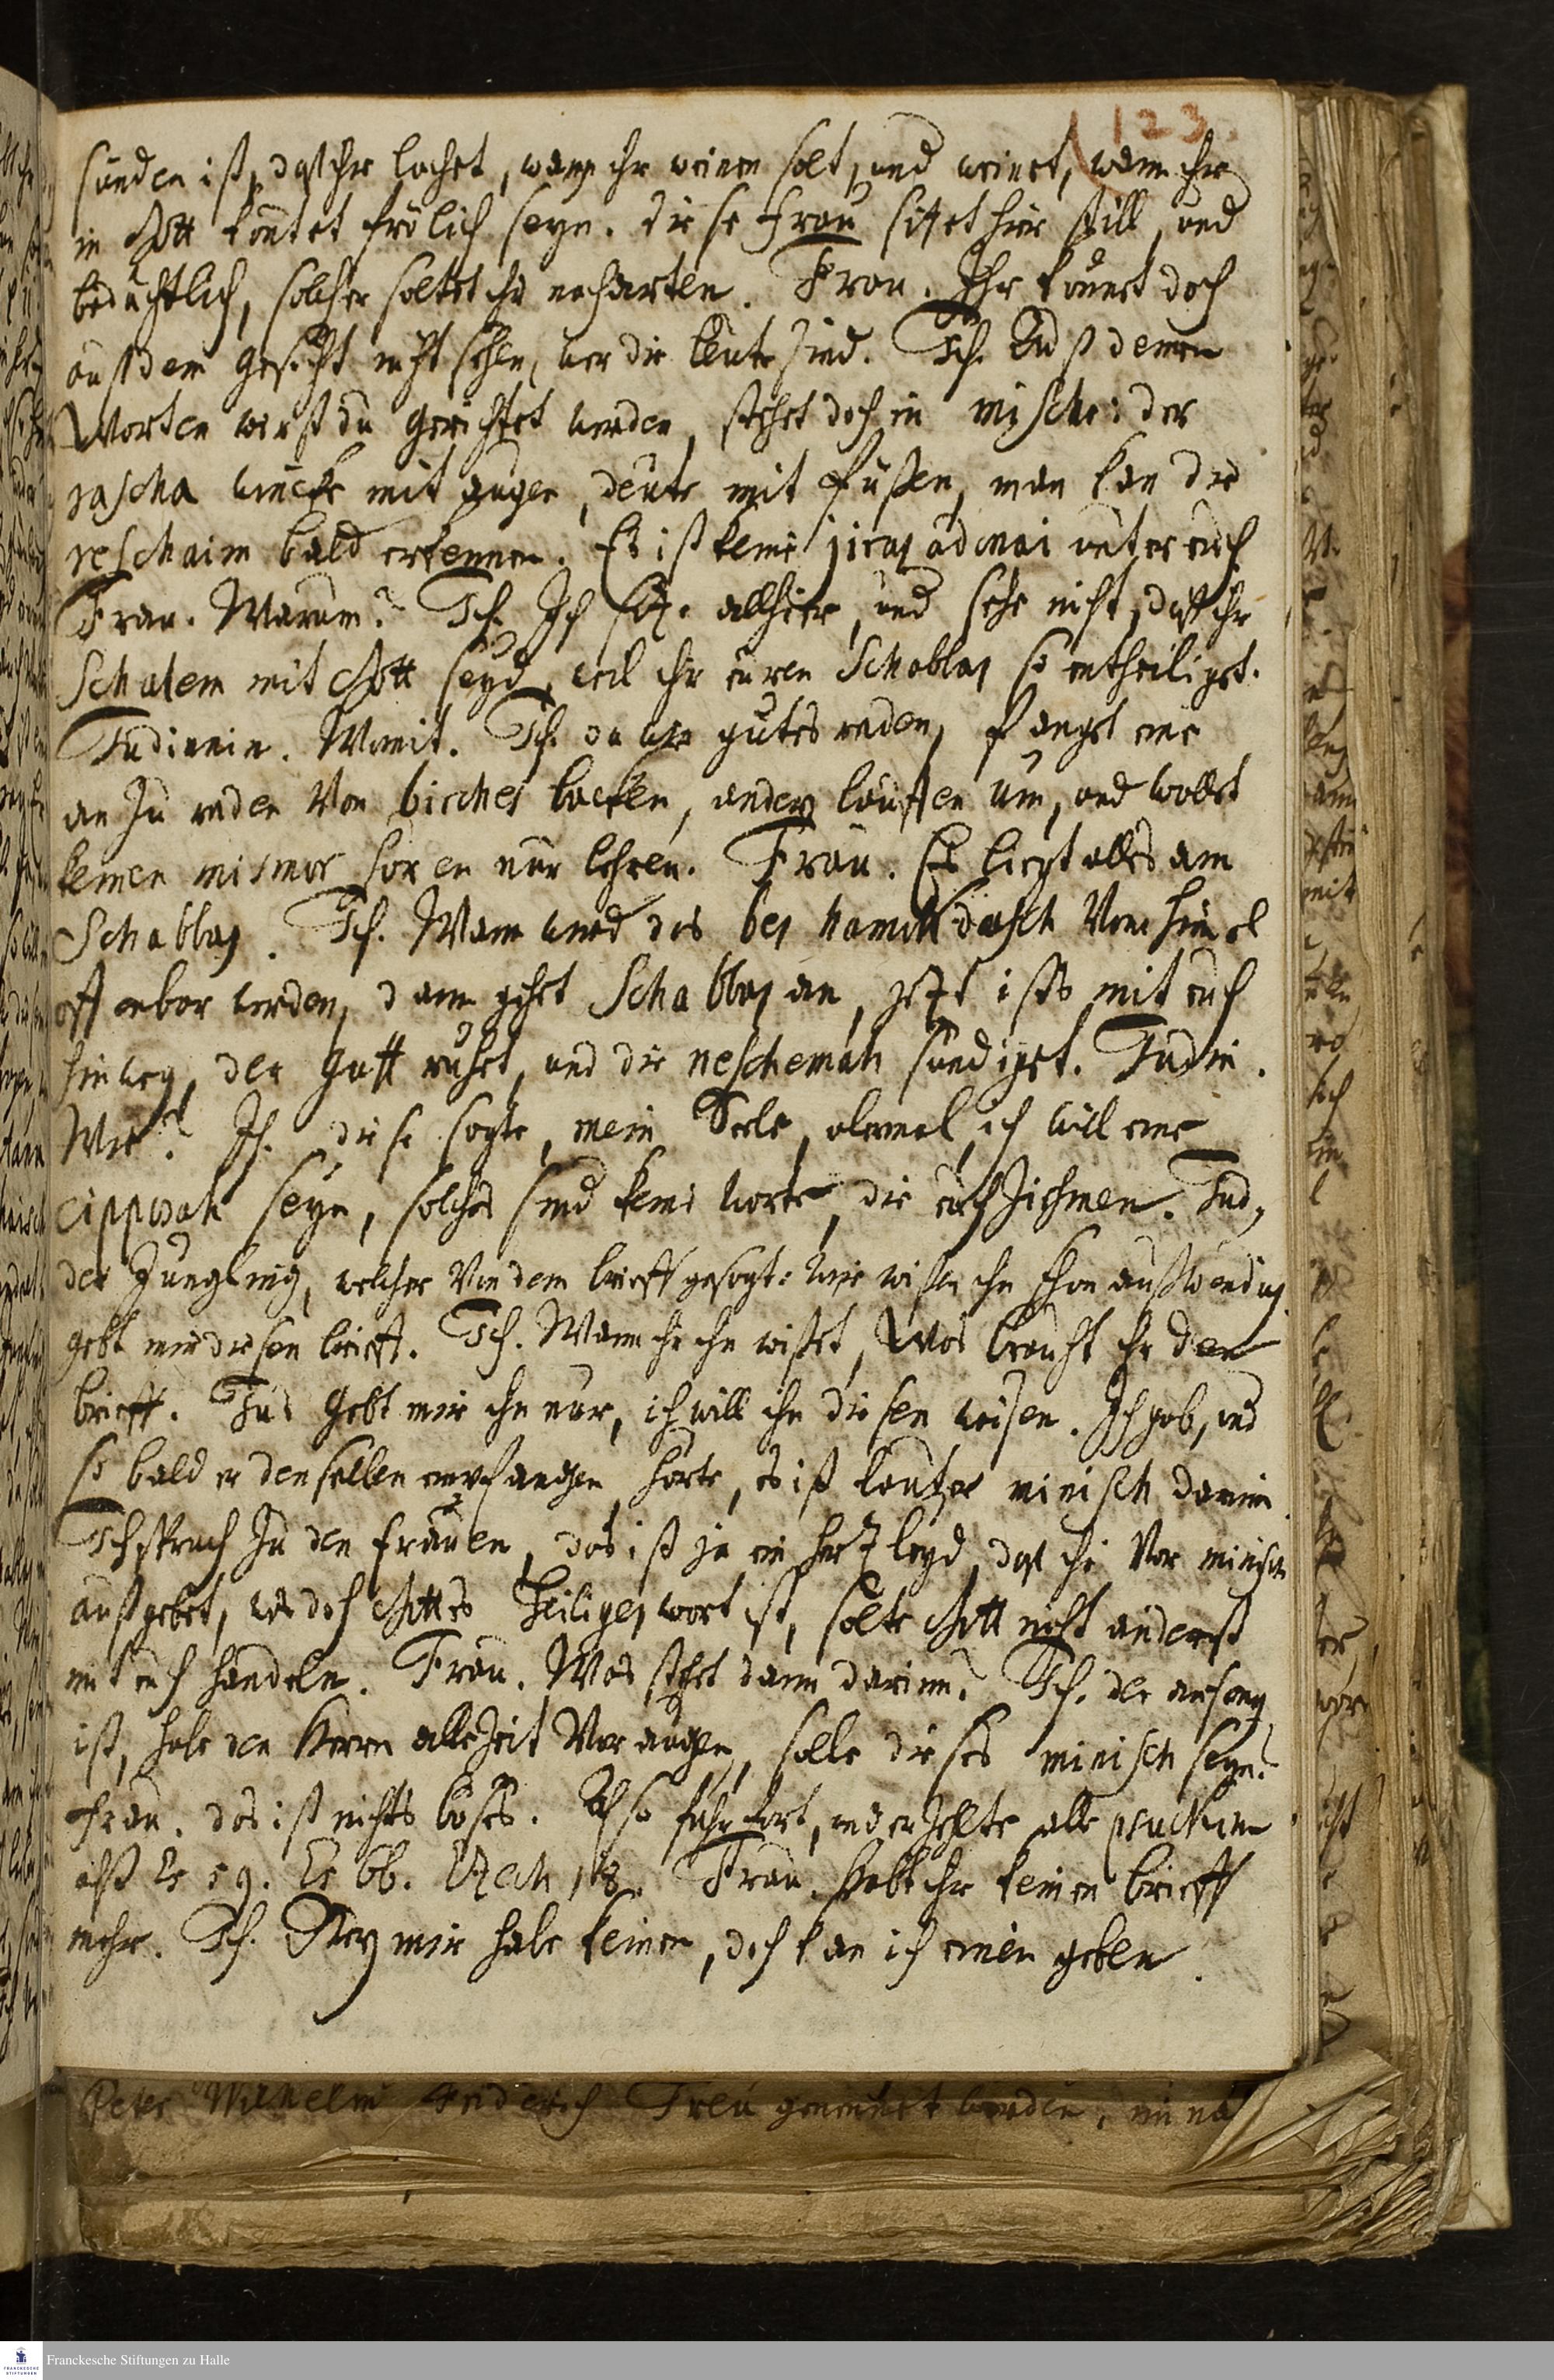 123.
sünden ist, daß ihr lachet, wann ihr weinen solt, und weinet, wann ihr
in Gott köntet frölich seyn. diese Frau sitzet hier still, und
bedächtlich, solcher soltet ihr nacharten. Frau. Ihr könnet doch
auß dem gesicht nicht sehen, wer die leute sind. Ich. Auß deinen
Worten wirst du gerichtet werden, stehet doch in mischle: der
rascha wincke mit augen, deute mit füßen, man kan die
reschaim bald erkennen. Es ist keine jiras adonai unter euch
Frau. Warum? Ich. Ich sitze allhier, und sehe nicht, daß ihr
Schalem mit Gott seyd, weil ihr euren Schabbas so entheiliget.
Judinnin. Womit. Ich. da wir gutes reden, fangt eine
an zu reden von birches backen, andere lauffen um, und wollet
keinen mismor hören nur lehren. Frau. Es liegt alles am
Schabbas. Ich. Wann wird das bes hamikdasch vom himel
offenbar werden, dann gehet Schabbas an, jetzt ists mit euch
hinweg, der guff ruhet, und die neschemah sündiget. Judin.
Wie? Ich. diese sagte, mein Seele, abermal, ich will eine
cipporah seyn, solches sind keine worte, die euch ziehmen. Jud,
der Jüngling, welcher von dem brieff gesagt: wir wissen ihn schon außwendig
gebt mir diesen brieff. Ich. Wann ihr ihn wisset, was braucht ihr den
brieff. Jud Gebt mir ihn nur, ich will ihn diesen weisen. Ich gab, und
so bald er denselben empfangen, hörte, es ist lauter minisch darinn
Ich sprach zu den frauen, das ist ja ein hertzleyd, daß ihr vor minisch
außgebet, was doch Gottes heiliges wort ist, solte Gott nicht anderst
mit euch handeln. Frau. Was stehet dann darinn? Ich. der anfang
ist, habe den Herrn allezeit vor augen, solle dieses minisch seyn?
Frau. das ist nichts böses. Also fuhr fort, und erzehlte alle psuckim
alß Es 59. Es 66. Zach 13. Frau. Habt ihr keinen brieff
mehr. Ich. Bey mir habe keinen, doch kan ich einen geben.
Peter Wilhelm Friderich Treu genennet worden,
Franckesche Stiftungen zu Halle